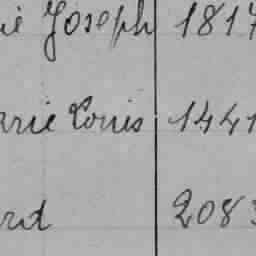 ie Joseph 1817
arie Louis 1441
ard 2083